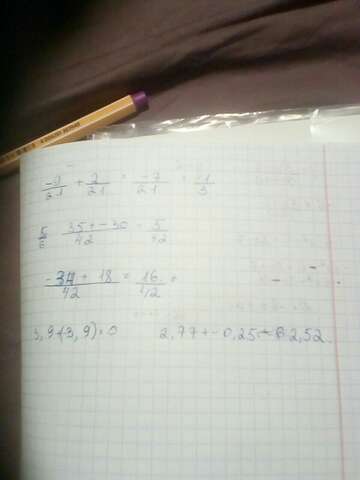 -9/21 + 2/21 = -7/21 = -1/3
5/6 35+-30/42 = 5/42
-34+18/42 = 16/42 =
3,9+(-3,9)=0 2,77+-0,25= 2,52